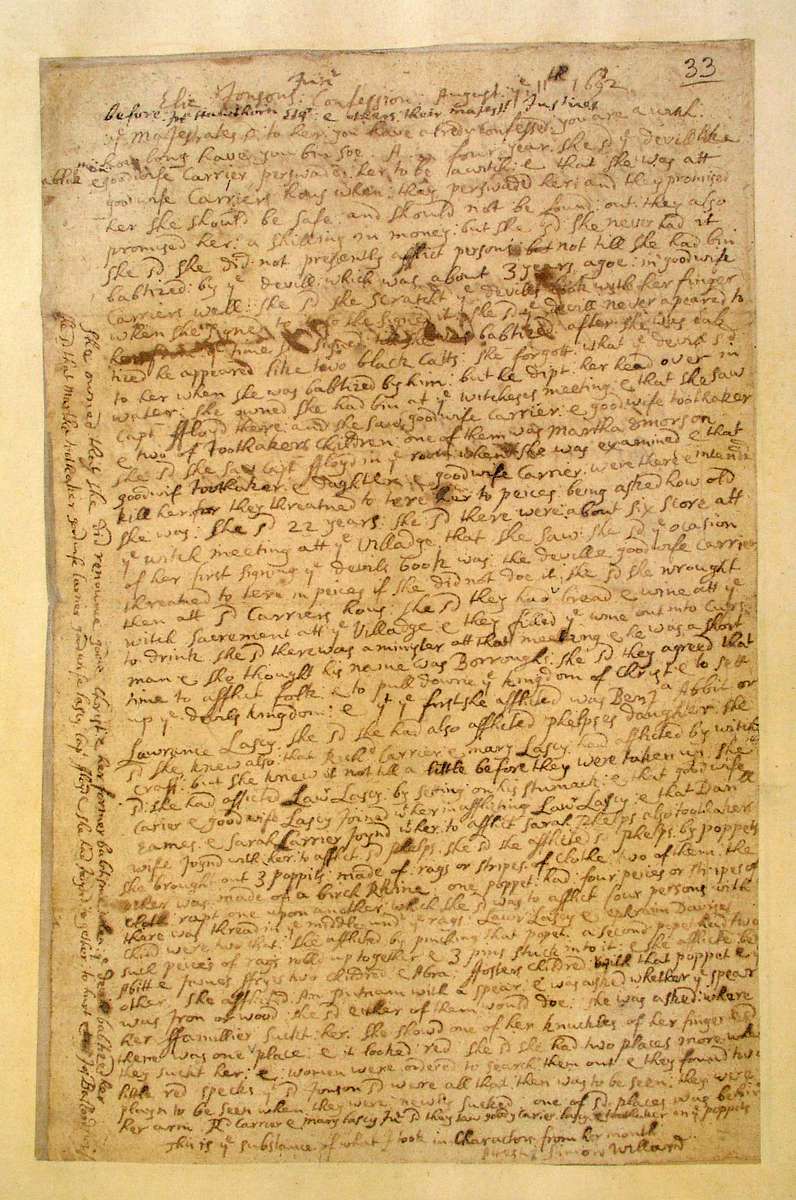 33
Eliz Jonsons Junr Confession August ye 11th 1692
Before Jno Hauthorn Esqr & others their majesties Justices
ye majestrates sd to her you have already confessed you are a witch
how long have you bin soe A four year she sd ye devill like
goodwife Carrier perswaded her to be a witch & that she was att
goodwife Carriers hous when they perswaded her and they promised
her she should be safe and should not be found out they also
promised her a shilling in money but she sd she never had it
She sd she did not presently afflict persons not till she had bin
babtized by ye devill which was about 3 years agoe in goodwife
Carriers well she sd she scratcht ye devills book with her finger
when she signed to it she sd ye devill never apeared to
time she after she was bab
tized he appeared like two black catts she forgott what ye devil sd
to her when she was babtized by him but he dipt her head over in
water she owned she had bin at ye witches meeting & that she saw
Capt ffloyd there and she saw goodwife carrier & goodwife toothaker
& two of toothakers children one of them was martha Emorson
she sd she saw Capt ffloyd in ye room when she was examined & that
goodwif toothaker & daghter & goodwife Carrier were there & intended to
kill her for they threatned to tere her to peices being asked how old
she was she sd 22 years she sd there were about six score att
ye witch meeting att ye Villadge that she saw she sd ye ocasion
of her first signing ye devils book was the deville goodwife Carrier
threatned to tere in peices if she did not doe it she sd she wrought
then att sd Carriers hous she sd they had bread & wine att ye
witch Sacrement att ye Villadge & they filled ye wine out into cups
to drink she sd there was a minister att that meeting & he was a short
man & she thought his name was Borrough she sd they agreed that
time to afflict folk & to pull downe ye kingdom of Christ & to sett
up ye devils kingdom & yt ye first she afflicted was Benja Abbit or
Lawrance Lasey she sd she had also afflicted phelpses daughter she
sd she knew also that Richd Carrier & mary Lasey had afflicted by witch
craft but she knew it not till a little before they were taken up she
sd she had afflicted Lawr Lasey by seting on his stumack & that goodwife
Carier & goodwife Lasey Joined with her in afflicting Lawr Lasey & that Danll
Eames & Sarah Carrier Joynd with her to afflict Sarah phelps also toothakers
wife Joynd with her to afflict sd phelps she sd she afflicted sd phelps by poppets
she brought out 3 poppits made of rags or stripes of clothe two of them the
other was made of a birch Rhine one poppet had four peices or stripes of
cloth rapt one upon another which she sd was to afflict four persons with
there was thread in ye middle under ye rags Lawr Lasey & ephraim Davises
Child were two that she afflicted by pinching that popet a second popet had two
such peices of rags rolld up together & 3 pins stuck into it & she afflicted benj
Abitt & James ffryes two children & Abra: ffosters children with that poppet & ye
other she afflicted Ann putnam with a spear & was asked whether ye spear
was Iron or wood she sd either of them would doe she was asked where
her ffamillier suckt her she showd one of her knuckles of her finger & sd
there was one place & it looked red she sd she had two places more where
they suckt her & women were ordered to search them out & they found two
little red specks yt sd Jonson sd were all that then was to be seen they were
playn to be seen when they were newly sucked one of sd places was behind
her arm Rd Carrier & mary Lasey Junr sd they saw goody Carier Lasey & toothaker on ye poppets
This is ye substance of what I took in Characters from her mouth
Attest Simon Willard
She owned that she did renounce god & christ & her former babtisme when ye devil babtized her
she sd that martha toothaker goodwife Carier goodwife Lasey Capt ffloyd & she had Joynd together to hurt